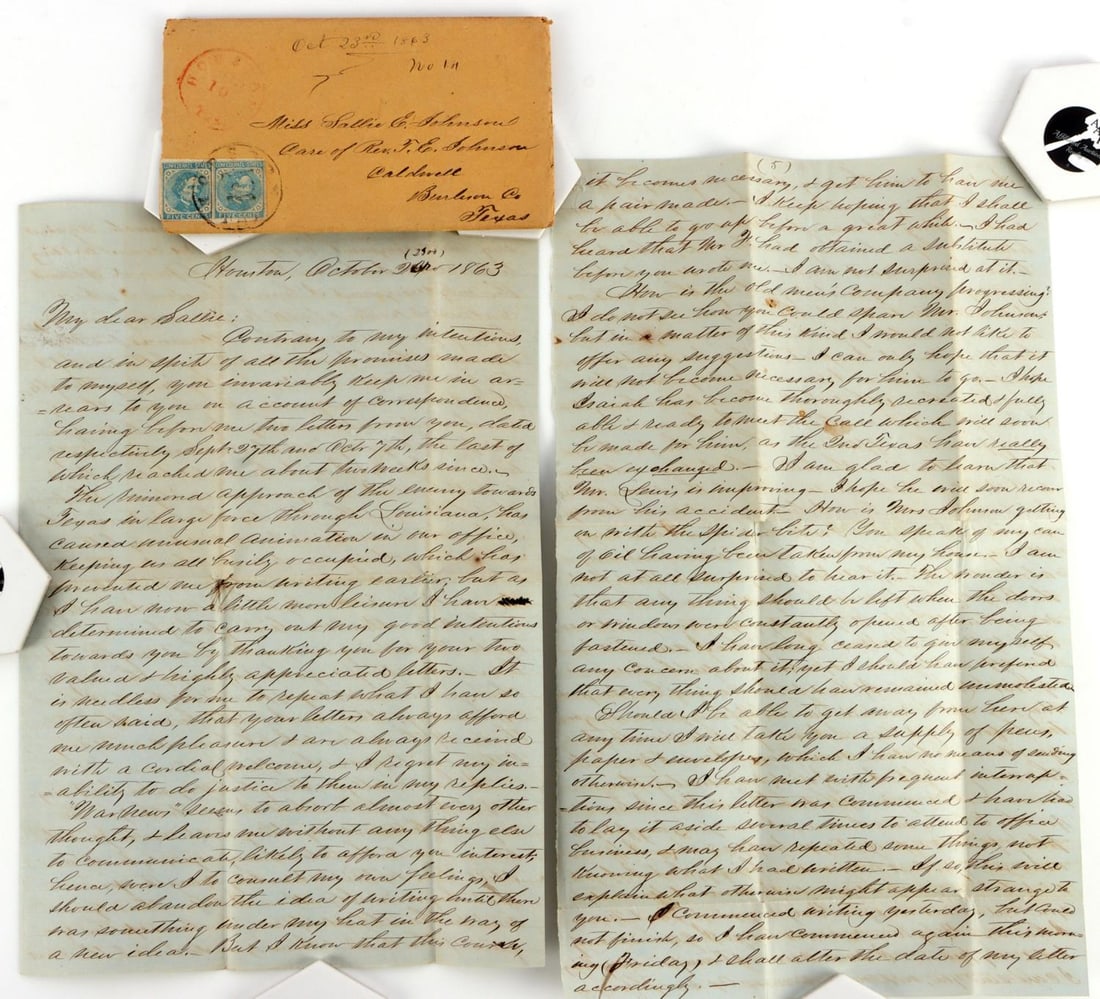 Oct 23rd 1863
No 10
Miss Sallie E. Johnson
Care of Rev. T. E. Johnson
Caldwell
Burleson Co
Texas
CONFEDERATE STATES
FIVE CENTS
FIVE CENTS
(23rd)
Houston, October 1863
My dear Sallie:
Contrary to my intentions,
and in spite of all the promises made
to myself, you invariably keep me in ar-
=rears to you on account of correspondence,
having before me two letters from you, dated
respectively Sept. 27th and Octr 7th, the last of
which reached me about two weeks since. -
The rumored approach of the enemy towards
Texas in large force through Louisiana, has
caused unusual animation in our office,
keeping us all busily occupied, which has
prevented me from writing earlier, but as
I have now a little more leisure I have
determined to carry out my good intentions
towards you by thanking you for your two
valued & highly appreciated letters. - It
is needless for me to repeat what I have so
often said, that your letters always afford
me much pleasure & are always received
with a cordial welcome, & I regret my in-
=ability to do justice to them in my replies. -
"War news" seems to absorb almost every other
thought, & leaves me without any thing else
to communicate, likely to afford you interest;
hence, were I to consult my own feelings, I
should abandon the idea of writing until there
was something under my hat in the way of
a new idea. - But I know that this course,
(5)
it becomes necessary, & get him to have me
a pair made. - I keep hoping that I shall
be able to go up before a great while. - I had
heard that Mr had obtained a substitute
before you wrote me. - I am not surprised at it. -
How is the old men's Company progressing?
I do not see how you could spare Mr. Johnson,
but in a matter of this kind I would not like to
offer any suggestions - I can only hope that it
will not become necessary for him to go. - I hope
Isaiah has become thoroughly recreated & fully
able & ready to meet the Call which will soon
be made for him, as the 2nd Texas have really
been exchanged. - I am glad to learn that
Mr. Lewis is improving - I hope he will soon recover
from his accident - How is Mrs Johnson getting
on with the spider bite? You speak of my can
of Oil having been taken from my house. - I am
not at all surprised to hear it. - The wonder is
that any thing should be left when the doors
or windows were constantly opened after being
fastened. - I have long ceased to give myself
any concern about it, yet I should have prefered
that every thing should have remained unmolested.
Should I be able to get away from here at
any time I will take you a supply of pens,
paper & envelopes, which I have no means of sending
otherwise. - I have met with frequent interrup-
=tions since this letter was commenced & have had
to lay it aside several times to attend to office
business, & may have repeated some things, not
knowing what I had written. - If so, this will
explain what otherwise might appear strange to
you. - I commenced writing yesterday, but could
not finish, so I have commenced again this morn-
ing (Friday) & shall alter the date of my letter
accordingly. -